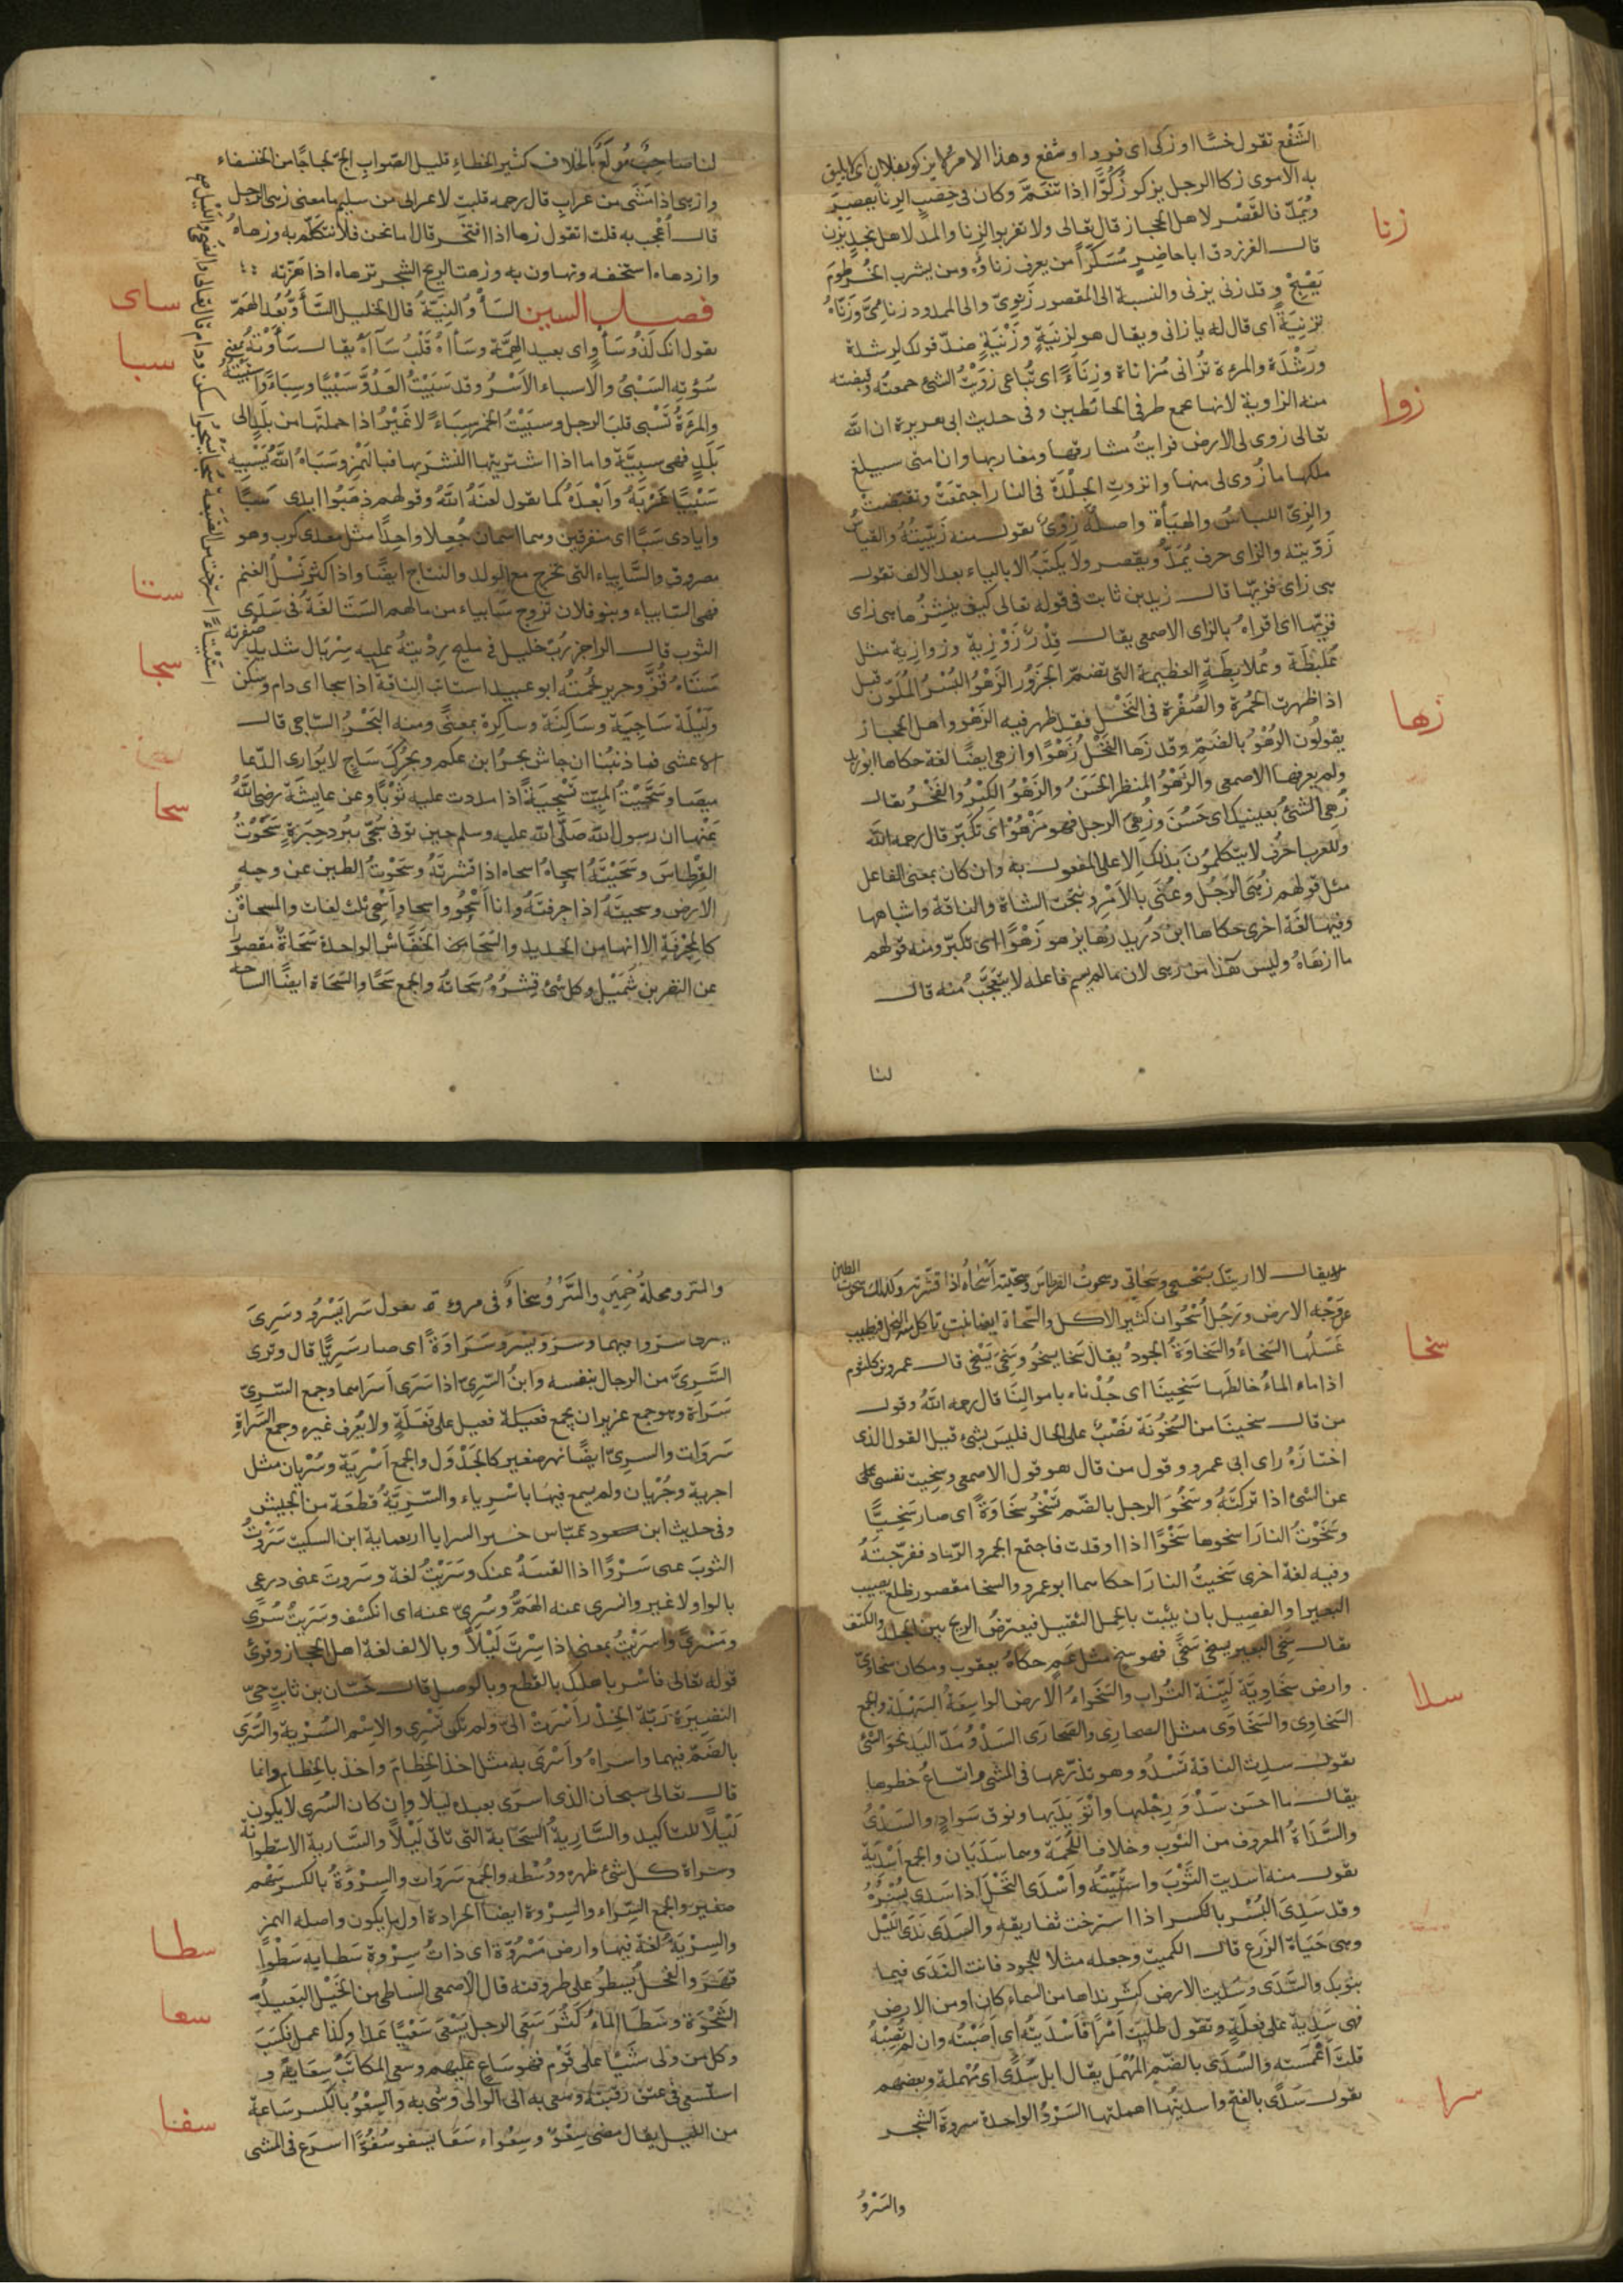 الشَّفْع تقول خسًا او زكى اى فرد او شفع وهذا الامر لا يزكو بفلان اى لا يليق
به الاموى زكا الرجل يزكو زُكُوًّا اذا تنعّم وكان فى خصب الزنا يقصر
ويُمَدّ فالقَصْر لاهل الحجاز قال تعالى ولا تقربوا الزنا والمد لاهل نجد
زنا
قال الفرزدق اباحاضر من يزن يعرف زناؤه ومن يشرب الخرطوم
يصبح وقد زنى يزنى والنسبة الى المقصور زنوىّ والى الممدود زنائىّ وزنّاه
تزنيةً اى قال له يا زانى ويقال هو لِزنْيَةٍ وزَنْيَةٍ ضدّ قولك لرشدة
ورَشْدَة والمرءة تُزانى مُزاناة وزِنَاءً اى تُباغى زوَيْتُ الشئ جمعته وقبضته
زوا
منه الزاوية لانها تجمع طرفى الحائطين وفى حديث ابى هريرة ان الله
تعالى زوى لى الارض فرايتُ مشارقها ومغاربها وان امتى سيبلغ
ملكها ما زُوى لى منها وانزوتِ الجِلْدَة فى النار اجتمعَتْ وتقبّضت
والزىّ اللباسُ والهيأة واصله زِوْىٌ تقول منه زَيّيتُهُ والقياسُ
زوّيته والزاى حرف يُمَدّ ويقصر ولا يكتب الا بالياء بعد الالف تقول
هى زاى فزيّها قال زيد بن ثابت فى قوله تعالى كيف ننشزها هى زاى
فزيّها اى اقراه بالزاى الاصمعى يقال قِدْرٌ زُوَزِية وزوازية مثل
عُلَبِطَة وعُلابِطَة العظيمة التى تضمّ الجَزُور الزَّهْوُ البُسْرُ المُلَوَّن قبل
زها
اذا ظهرت الحُمْرة والصُفْرة فى النَخْل فقد ظهر فيه الزَهْو واهل الحجاز
يقولُون الزُهْوُ بالضمّ وقد زَها النَخْلُ زَهْوًا وازهى ايضًا لغة حكاها ابو زيد
ولم يعرفها الاصمعى والزَهْوُ المنظر الحَسَنُ والزَهْوُ الكِبْرُ والفَخْرُ يقال
زُهِىَ الشئُ بعينيك اى حَسُنَ وزُهِىَ الرجل فهو مَزْهُوٌّ اى تكبّر قال رحمه الله
وللعرب احرُف لا يتكلمونَ بذلك الا على المفعول به وان كان بمعنى الفاعل
مثل قولهم زُهِىَ الرَجُل وعُنِىَ بالاَمْرِ ونُتِجَت الشاة والناقة واشباهها
وفيها لغة اخرى حكاها ابن دُرَيد زها يزهو زَهْوًا اى تكبّر ومنه قولهم
ما ازهاهُ وليس هذا من زهى لان ما لم يسم فاعله لا يتعجّبُ منه قال
لنا
لنا صاحبٌ مُولَعٌ بالخلاف كثير الخطاءِ قليل الصّوابِ الجّ لجاجًا من الخنفساء
وازهى اذا مَشَى من غراب قال رحمه قلت لاعرابى من سليم ما معنى زهى الرجل
قال اُعْجِب به قلت اتقول زها اذا افتخر قال اما نحن فلا نتكلّم به وزهاهُ
وازدهاه استخفه وتهاون به وزهت الريح الشجر تزهاه اذا هَزّته
فصل السين السَأْوُ النِيَّة قال الخليل السَأْوُ بُعْد الهَمّ
ساى
تقول انك لذُو سَأْوٍ اى بعيد الهِمَّة وسأاهُ قَلْبُ سَآءهُ يقال سَأَوْتُهُ بمعنى
سبا
سُؤْتِه السَبْىُ والسباء الاَسْرُ وقد سَبَيْتُ العَدُوَّ سَبْيًا وسِبَاءً واسْتَبَيْتُهُ
والمرْءةُ تَسْبى قلبَ الرجل وسبَيْتُ الخمر سِبَاءً لا غَيْرُ اذا حملتَها من بَلَدٍ الى
بَلَدٍ فهى سبِيَّة واما اذا اشتريتها لتشربها فبالهَمْز وسَبَاهُ اللهُ يَسْبِيهِ
سَبْيًا غَرّبَهُ واَبْعَدَهُ كما تقول لعنَهُ اللهُ وقولهم ذهَبُوا ايدى سَبَا
وايادى سَبَا اى متفرقين وهما اسمان جُعِلا واحِدًا مثل معدى كرب وهو
مصروف والسَّابِياء التى تخرج مع الولد والنتاج ايضًا واذا كثر نَسْلُ الغنم
فهى السّابياء وبنو فلان تروح سَابياء من مالهم السَتَا لغَةٌ فى سَدَى
ستا
الثوب قال الراجز رُبّ خليل لى مليح رِدْيتهُ عليه سِرْبَال شديد صُفرته
سَتَاهُ قُزٌّ وحرير لحُمتُه ابو عبيد استات الناقة اذا سجا اى دام وسكن
سجا
ولَيْلَة سَاجِيَة وسَاكِنَة وسَاكِرة بمعنًى ومنه البَحْرُ السّاجى قال
الاعشى فما ذنبُنا ان جاش بحرُ ابن عمكم وبحْرُكَ سَاجٍ لا يُوارى الدّعا
ميصَا وسَجَّيْتُ الميّت تَسْجِيَةً اذا مددت عليه ثَوْبًا وعن عايشة رضى الله
عنها ان رسول الله صَلّى الله عليه وسلم حين توفى سُجّى ببُرد حِبَرَةٍ سَحَوْتُ
سحا
القِرْطاسَ وسَحَيْتَهُ اسحاهُ اسحاه اذا قشَرتَهُ وسَحَوْتُ الطين عن وجه
الارض وسحيتَهُ اذا جرفتَهُ وانا اَسْحُو واسحا واَسْحِى ثلث لغات والمسحاةُ
كالمِجْرَفَةِ الا انها من الحديد والسَحَا مِن الخفّاشُ الواحدة سَحَاةٌ مقصور
عن النضر بن شُمَيْل وكل شئ قِشْرُهُ سَحاتُهُ والجمع سَحًا والسَّحَاة ايضًا الساحة
يقال لا اريتك بسَحْسَحى وسَحاتى وسحوتُ القرطاسَ وسحيته اَسْحاهُ اذا قشرته وكذلك سحوتُ الطين
عن وَجْه الارض ورَجُل اُسْحُوان كثير الاكل والسّحاة ايضا نبت تاكله النحل فيطيب
عَسَلُها السَخاءُ والسَخاوَةُ الجود يُقال سَخا يسخُو وسَخِىَ يَسْخَى قال عمرو بن كلثوم
سخا
اذا ماء الماءُ خالطَها سَخِينَا اى جُدْناه باموالِنَا قال رحمه اللهُ وقول
من قال سخينَا من السُخُونَة نَصْبٌ على الحال فليس بشئ قيل القول الذى
اختارَهُ راى ابى عمرو وقول من قال هو قول الاصمعى وسخِيت نفسى على
عن الشئ اذا تركتَهُ وسَخُوَ الرجل بالضّم تَسْخُو سَخَاوَةً اى صار سَخِيًّا
وسَخَوْتُ النارَ اسخوها سَخْوًا اذا اوقدت فاجتمع الجمر والرّماد ففرّجتَهُ
وفيه لغة اخرى سَخيتُ النارَ احكاهما ابو عمرو والسخا مقصور ظلع يصيب
البعير او الفصيل بان يثبَ بالحمل الثقيل فيعترضُ الريح بين الجلد والكتف
يقال سَخِىَ البعير يسخى سَخًى فهو سخٍ مثل عَمٍ حكاهُ يعقوب ومكان سخاوىّ
وارض سخَاوِيَّة لَيّنَة التُراب والسَخَواءُ الارض الواسعَة السَهْلة والجمع
السَخاوِى والسَخَاوَى مثل الصحارِى والصَحارَى السَدْوُ مَدّ اليَد نحوَ الشئ
سدا
تقول سدت الناقة تَسْدُو وهو تذرّعها فى المشى واتساعُ خطوها
يقال ما احسَن سَدْوَ رِجْليها واَتْوَ يَدَيها ونوق سَوادٍ والسَدْىُ
والسَّدَاةُ المعروف من الثوب وخلاف اللُحْمَة وهما سَدَيَان والجمع اَسْدِيَة
تقول منه اسديت الثَوْبَ واسْتَيْتُه واَسْدَى النَخْلُ اذا سَدى بُسْرُهُ
وقد سَدِىَ البُسْر بالكسر اذا استرخت ثفاريقه والسَدَى نَدَى اللّيْل
وهى حَيَاة الزرع قال الكميت وجعله مثلا للجود فانت النَدَى فيما
ينوبُك والسَّدَى وسَدِيَت الارض كثر نداها من السماء كان او من الارض
فهى سَدِيَة على فعِلَةٍ وتقول طلَبْت اَمْرًا فَاَسْدَيتُه اى اصَبْتُه وان لم تُصِبْهُ
قلتَ اَغْمَسته والسُدَى بالضمّ المُهْمَل يقال ابل سُدًى اى مُهْملة وبعضهم
تقول سَدًى بالفتح واسديتُها اهملتها السَرْوُ الواحدة سروة الشجر
سرا
والسَرْوُ
والسَرْوُ محلة حِمْيَر والسَّرْوُ سخاءٌ فى مروءة تقول سَرا يَسْرُو وسَرِىَ
سَرْوًا فيهما وسَرُوَ يسرُو سَرَاوَةً اى صار سَرِيًّا قال وترى
السَّرِىَّ من الرجال بنفسه وابنُ السّرِىّ اذا سَرَى اَسْرَاهما وجمع السّرِىّ
سَرَاة وهو جمع عزيز ان يجمع فعيلة فعيل على فَعَلَةٍ ولا يُعرف غيره وجمع السَّراةِ
سَرَوات والسرىّ ايضًا نهر صغير كالجَدْوَل والجمع اَسْرِيَة وسُرْيان مثل
اجربة وجُرْبان ولم يسمع فيها باَسْرِياء والسَّرِيَّةُ قطعَة من الجيش
وفى حديث ابن مسعود عبّاس خير السرايا اربعماية ابن السكيت سَرَوْتُ
الثوبَ عنى سَرْوًا اذا القيتَهُ عنك وسَرَيْتُ لغة وسَروتُ عنى درعى
بالواو لا غير وانسرى عنه الهَمُّ وسُرِىَ عنه اى انكشف وسَرَيتُ سُرًى
ومَسْرًى واَسرَيْتُ بمعنى اذا سِرْتَ لَيْلاً وبالالف لغة اهل الحجاز وقرئ
قوله تعالى فاسر باهلك بالقطع وبالوصل قال حَسّان بن ثابتٍ حىّ
النضيرَة رَبّة الخِدْر اَسْرَتْ الىّ ولم تكن تَسْرى والاِسْم السُرْية والسُرَى
بالضَمّ فيهما واسراهُ واَسْرَى به مثل اخذ الخِطامَ واخذ بالخِطام وانما
قال تعالى سبحان الذى اسرَى بعبده ليلا وان كان السُرَى لا يكون
لَيْلاً للتاكيد والسَّاريَة السحَابة التى تاتى لَيْلاً والسَّارية الاسطوانة
وسَراة كل شئ ظهره ووُسْطه والجمع سَرَوات والسِرْوَةُ بالكسر سَهْم
صغير والجمع السِّراء والسِرْوة ايضا الجرادة اول ما يكون واصله الهمز
والسِرْيَةُ لغة فيها وارض مَسْرُوّة اى ذاتُ سِرْوة سَطا به سَطْوًا
سطا
قهَرَه والفحْلُ يَسطُو على طروقته قال الاصمعى الساطى من الخَيْل البَعيدُ
الشَّحْوَة وسَطَا الماءُ كَثُرَ سَعَى الرجل يَسْعَى سَعْيًا عَدا وكذا عمل وكَسَبَ
سعا
وكل من ولى شَيئًا على قَوْم فهو سَاعٍ عليهم وسعى المكاتَبُ سِعَايةً و
استسعى فى عتق رقبَته وسَعى به الى الوالى وشى به والسِعْوُ بالكسر سَاعة
من الليل يقال مضى سِعْوٌ وسِعْواء سَفَا يسفو سُفُوًّا اسرَع فى المشى
سفا